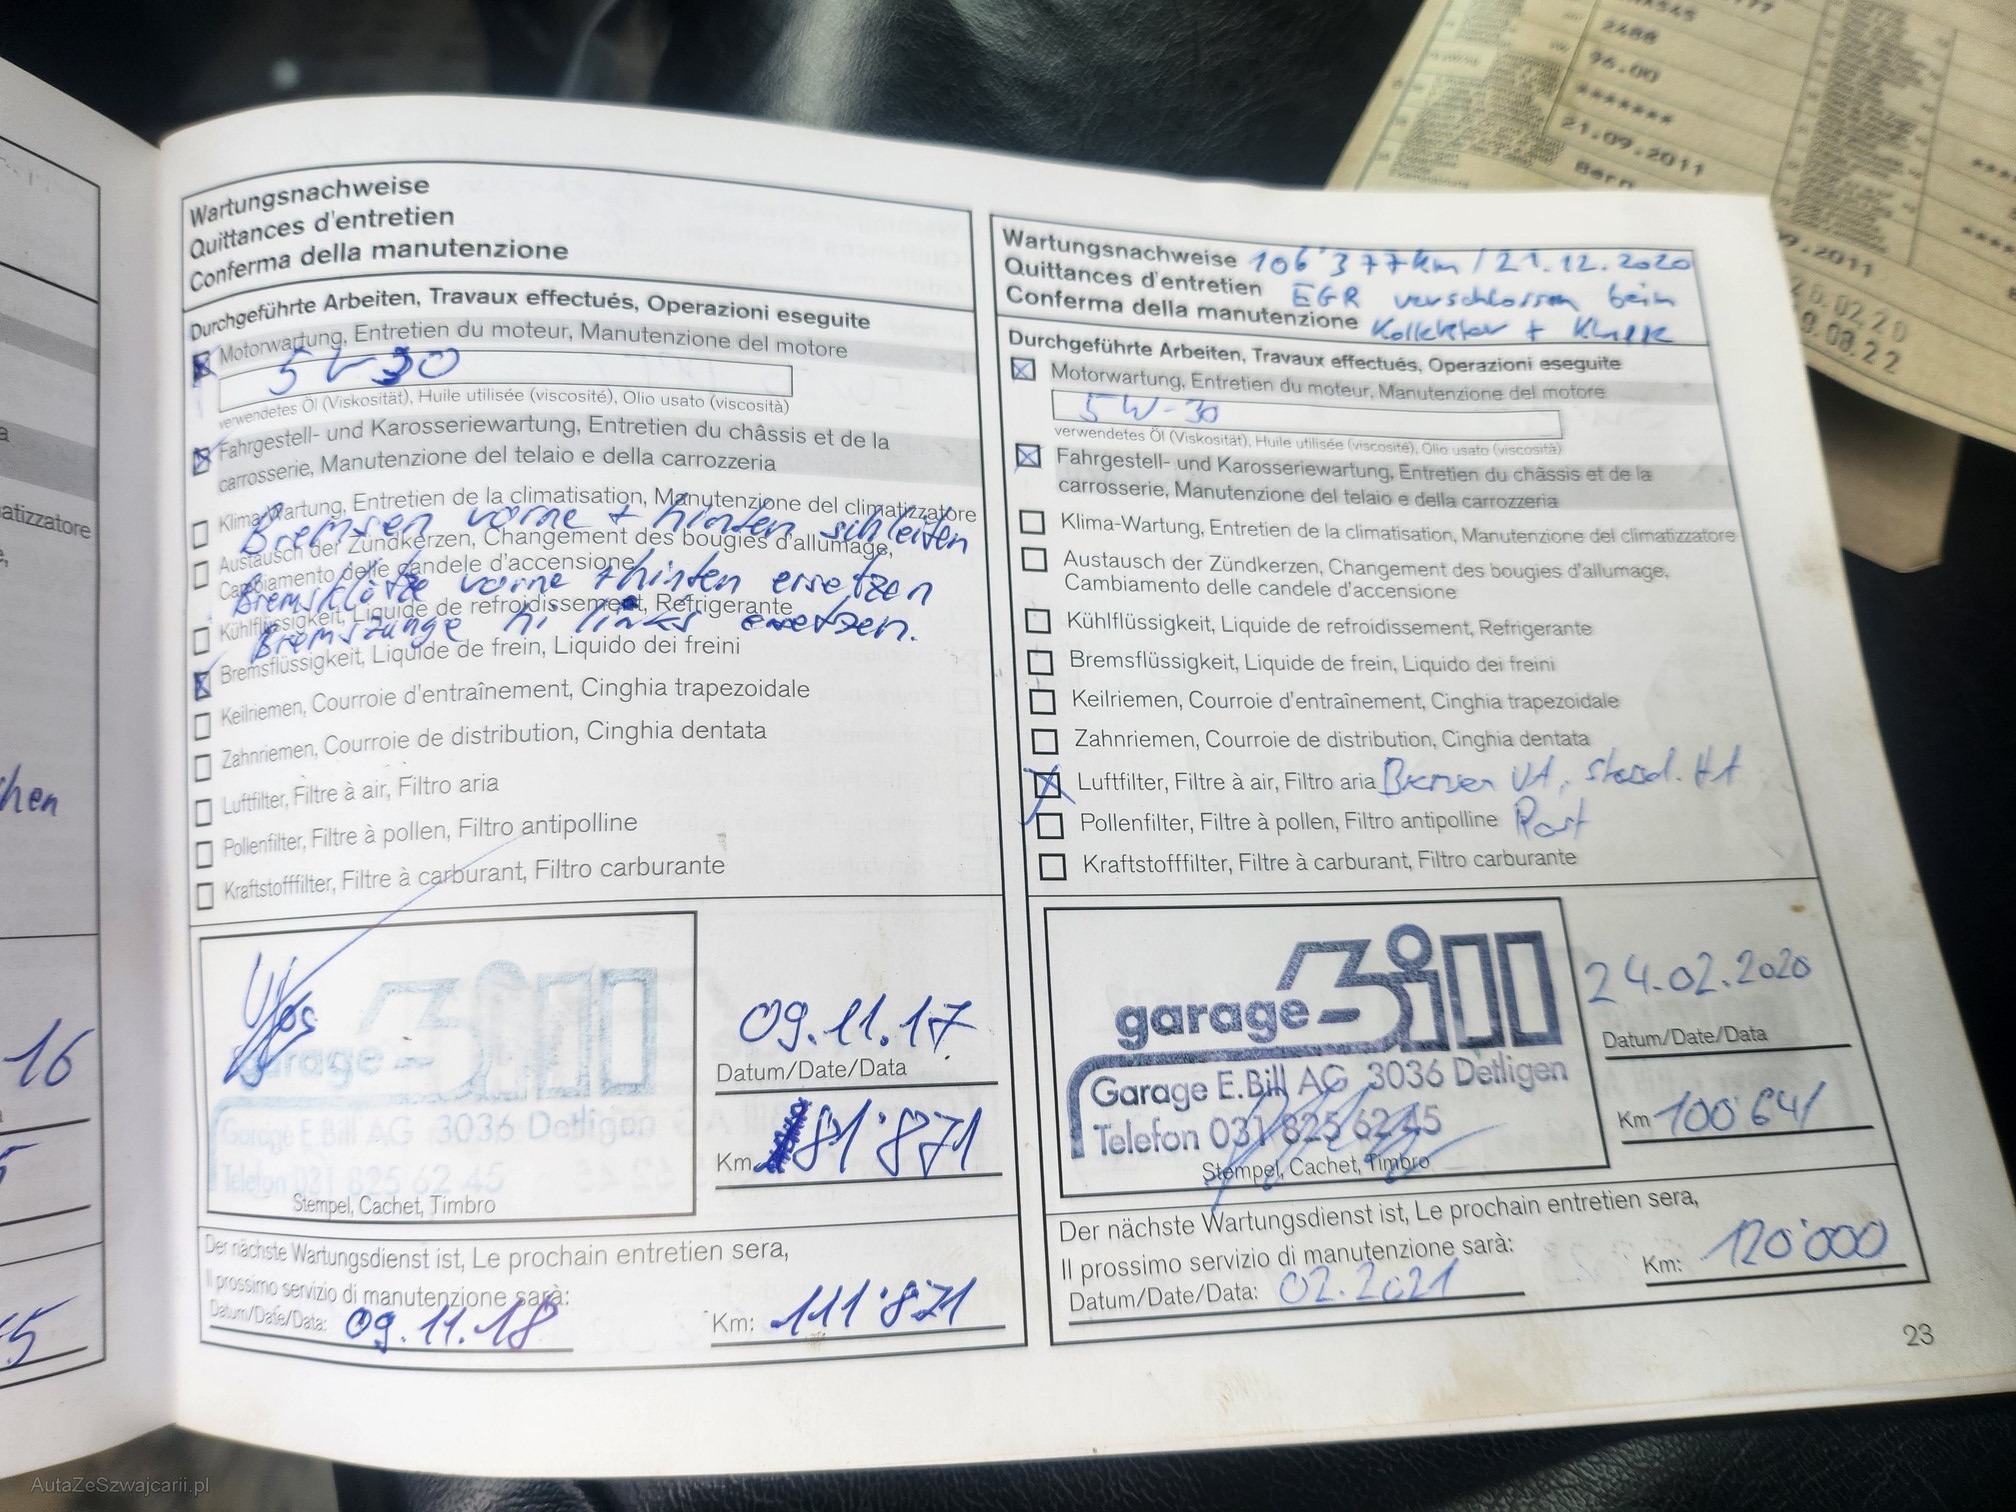 atizzatore
hen
16
5
Wartungsnachweise
Quittances d'entretien
Conferma della manutenzione
Durchgeführte Arbeiten, Travaux effectués, Operazioni eseguite
Motorwartung, Entretien du moteur, Manutenzione del motore
5W-30
verwendetes Öl (Viskosität), Huile utilisée (viscosité), Olio usato (viscosità)
Fahrgestell- und Karosseriewartung, Entretien du châssis et de la
carrosserie, Manutenzione del telaio e della carrozzeria
Klima-Wartung, Entretien de la climatisation, Manutenzione del climatizzatore
Bremsen vorne + hinten schleifen
Austausch der Zündkerzen, Changement des bougies d'allumage,
Cambiamento delle candele d'accensione
Bremsklötze vorne + hinten ersetzen
Kühlflüssigkeit, Liquide de refroidissement, Refrigerante
Bremszange hi links ersetzen.
Bremsflüssigkeit, Liquide de frein, Liquido dei freini
Keilriemen, Courroie d'entraînement, Cinghia trapezoidale
Zahnriemen, Courroie de distribution, Cinghia dentata
Luftfilter, Filtre à air, Filtro aria
Pollenfilter, Filtre à pollen, Filtro antipolline
Kraftstofffilter, Filtre à carburant, Filtro carburante
garage Bill
Garage E.Bill AG 3036 Detligen
Telefon 031 825 62 45
Stempel, Cachet, Timbro
09.11.17
Datum/Date/Data
Km 81'871
Der nächste Wartungsdienst ist, Le prochain entretien sera,
Il prossimo servizio di manutenzione sarà:
Datum/Date/Data: 09.11.18 Km: 111'871
Wartungsnachweise 106'377km / 21.12.2020
Quittances d'entretien EGR verschlossen beim
Conferma della manutenzione Kollektor + Klappe
Durchgeführte Arbeiten, Travaux effectués, Operazioni eseguite
Motorwartung, Entretien du moteur, Manutenzione del motore
5W-30
verwendetes Öl (Viskosität), Huile utilisée (viscosité), Olio usato (viscosità)
Fahrgestell- und Karosseriewartung, Entretien du châssis et de la
carrosserie, Manutenzione del telaio e della carrozzeria
Klima-Wartung, Entretien de la climatisation, Manutenzione del climatizzatore
Austausch der Zündkerzen, Changement des bougies d'allumage,
Cambiamento delle candele d'accensione
Kühlflüssigkeit, Liquide de refroidissement, Refrigerante
Bremsflüssigkeit, Liquide de frein, Liquido dei freini
Keilriemen, Courroie d'entraînement, Cinghia trapezoidale
Zahnriemen, Courroie de distribution, Cinghia dentata
Luftfilter, Filtre à air, Filtro aria Bremsen VA, HA
Pollenfilter, Filtre à pollen, Filtro antipolline Rost
Kraftstofffilter, Filtre à carburant, Filtro carburante
garage Bill
Garage E.Bill AG 3036 Detligen
Telefon 031 825 62 45
Stempel, Cachet, Timbro
24.02.2020
Datum/Date/Data
Km 100'641
Der nächste Wartungsdienst ist, Le prochain entretien sera,
Il prossimo servizio di manutenzione sarà:
Datum/Date/Data: 02.2021 Km: 120'000
23
2488
96.00
*******
21.09.2011
Bern
09.2011
26.02.20
08.22
AutaZeSzwajcarii.pl